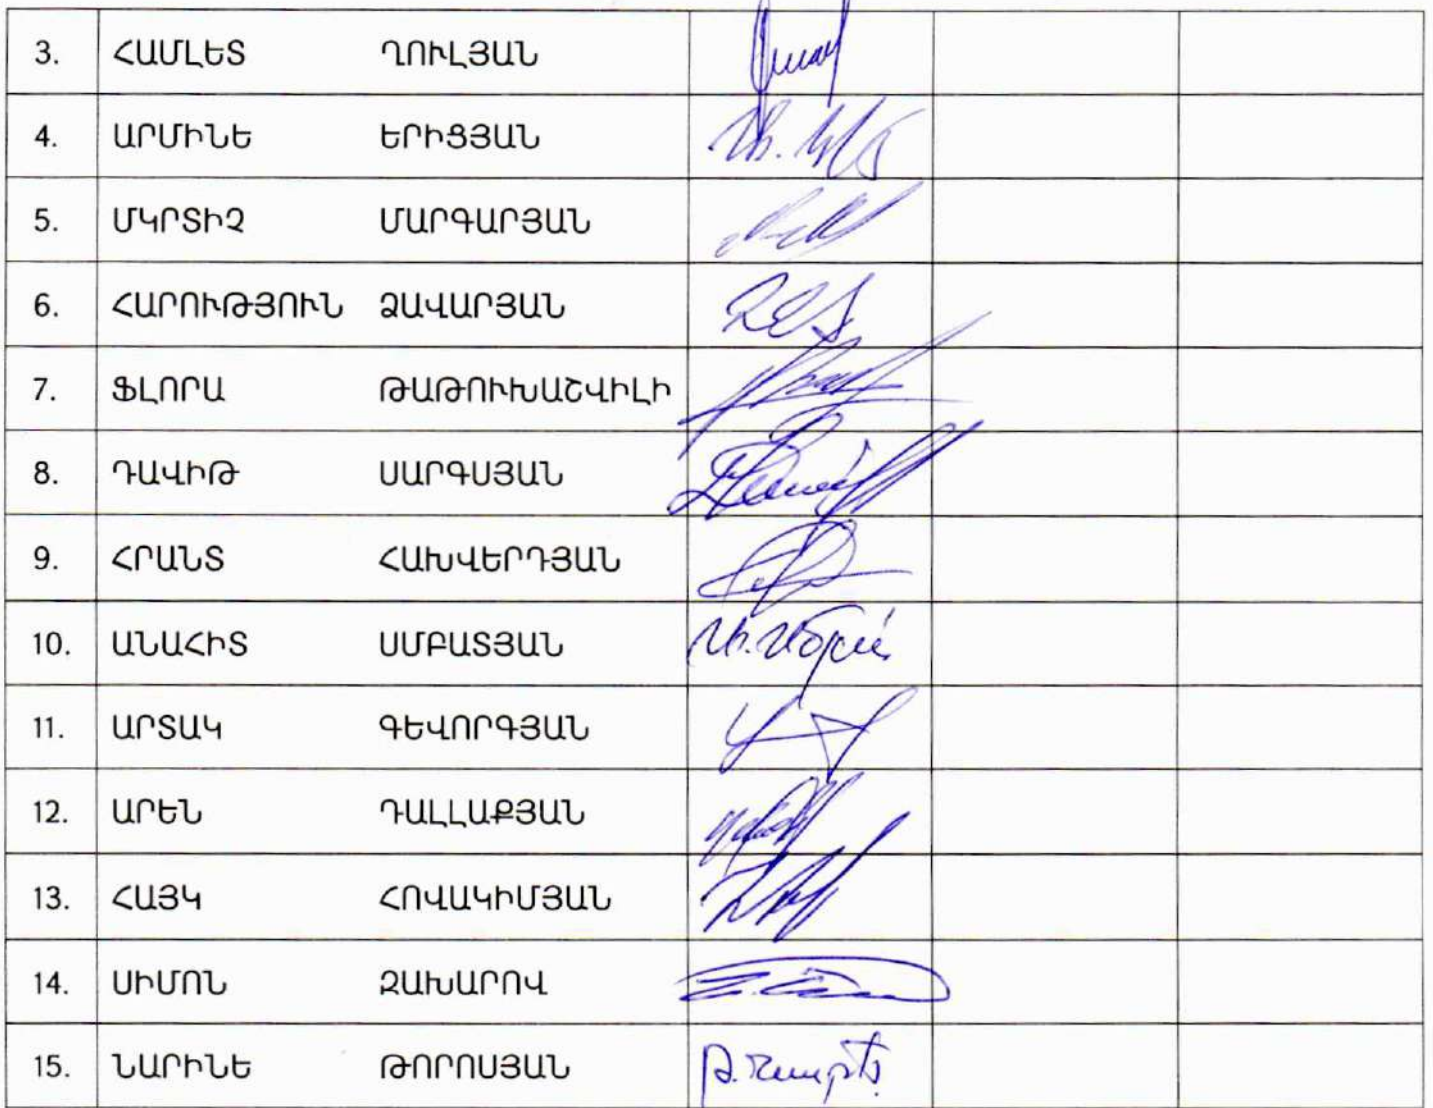 3. ՀԱՄԼԵՏ ՂՈՒԼՅԱՆ
4. ԱՐՄԻՆԵ ԵՐԻՑՅԱՆ
5. ՄԿՐՏԻՉ ՄԱՐԳԱՐՅԱՆ
6. ՀԱՐՈՒԹՅՈՒՆ ՁԱՎԱՐՅԱՆ
7. ՖԼՈՐԱ ԹԱԹՈՒԽԱՇՎԻԼԻ
8. ԴԱՎԻԹ ՍԱՐԳՍՅԱՆ
9. ՀՐԱՆՏ ՀԱԽՎԵՐԴՅԱՆ
10. ԱՆԱՀԻՏ ՍՄԲԱՏՅԱՆ
11. ԱՐՏԱԿ ԳԵՎՈՐԳՅԱՆ
12. ԱՐԵՆ ԴԱԼԼԱՔՅԱՆ
13. ՀԱՅԿ ՀՈՎԱԿԻՄՅԱՆ
14. ՍԻՄՈՆ ԶԱԽԱՐՈՎ
15. ՆԱՐԻՆԵ ԹՈՐՈՍՅԱՆ